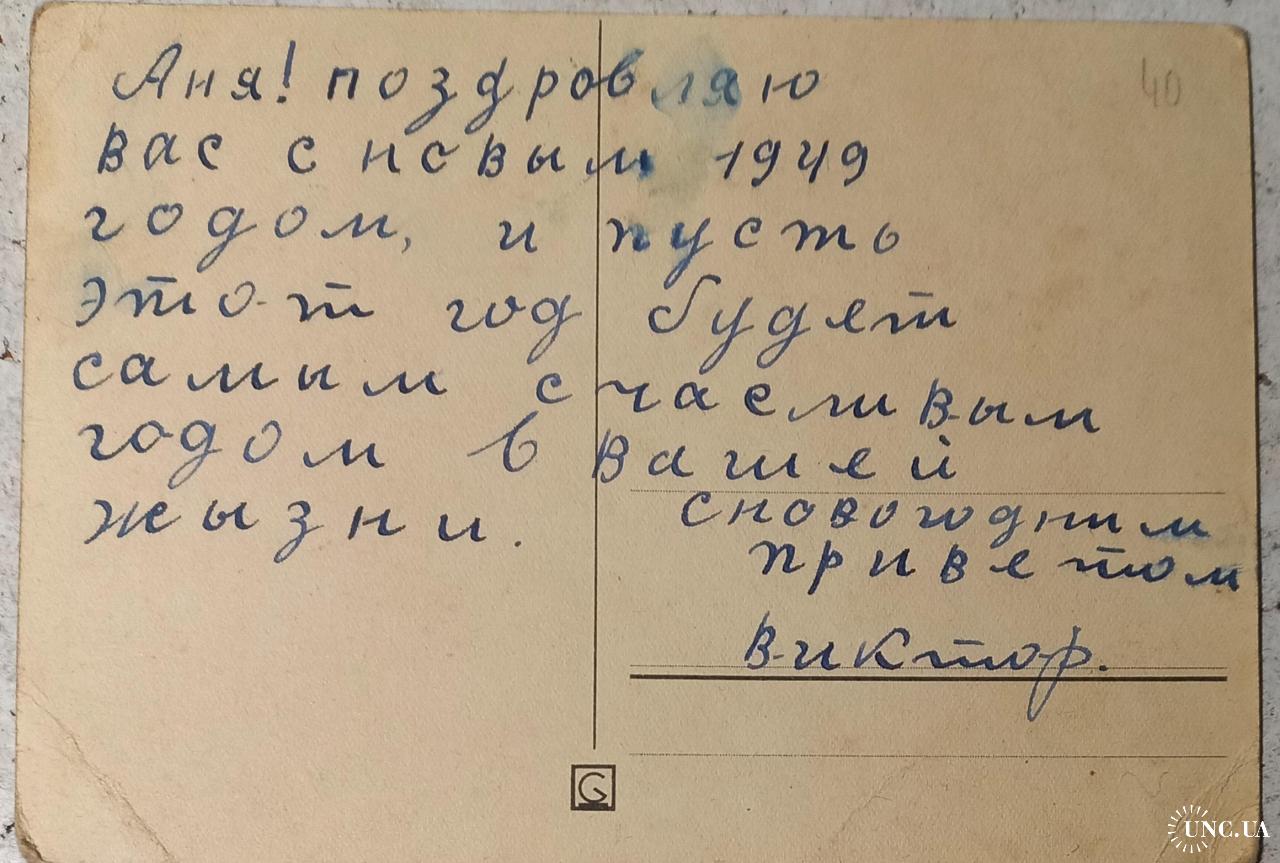 Аня! поздровляю
вас с новым 1949
годом, и пусть
этот год будет
самым счасливым
годом в вашей
жызни.
сновогодним
приветом
Виктор.
40
G
UNC.UA